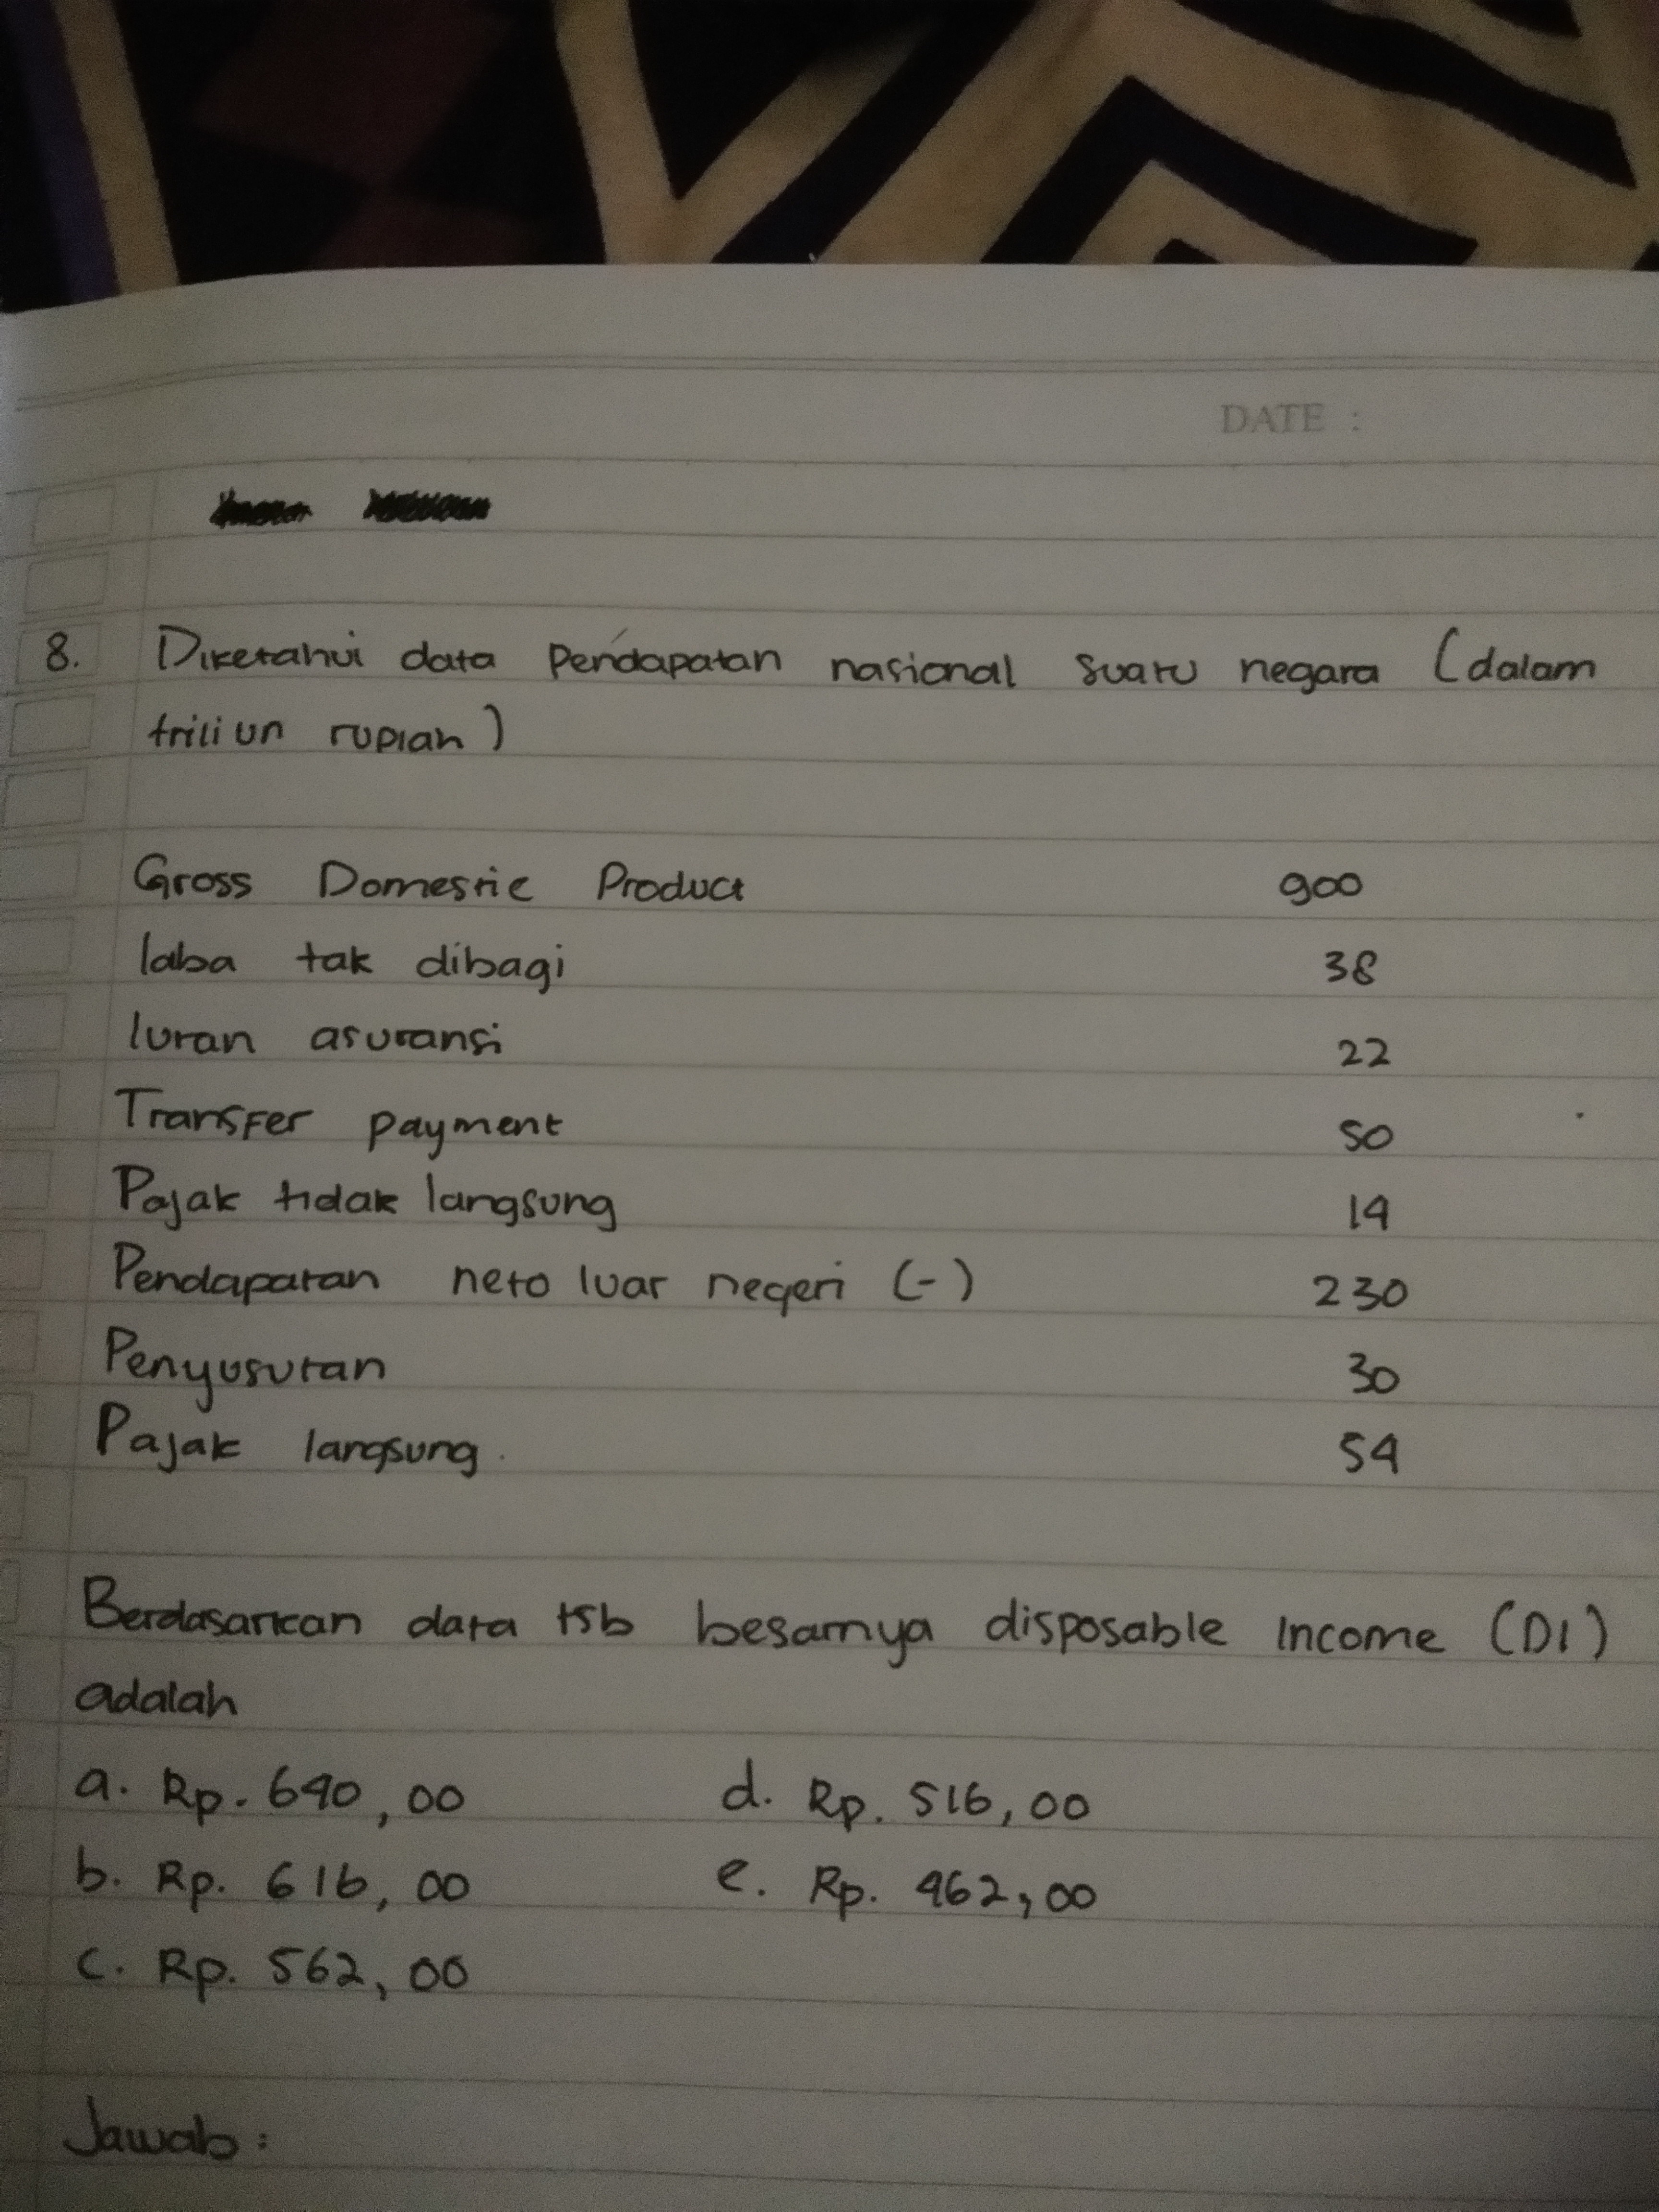 DATE :
8. Diketahui data pendapatan nasional suatu negara (dalam
triliun rupiah)
Gross Domestic Product 900
laba tak dibagi 38
Iuran asuransi 22
Transfer payment 50
Pajak tidak langsung 14
Pendapatan neto luar negeri (-) 230
Penyusutan 30
Pajak langsung 54
Berdasarkan data tsb besarnya disposable income (DI)
adalah
a. Rp. 640,00 d. Rp. 516,00
b. Rp. 616,00 e. Rp. 462,00
c. Rp. 562,00
Jawab :